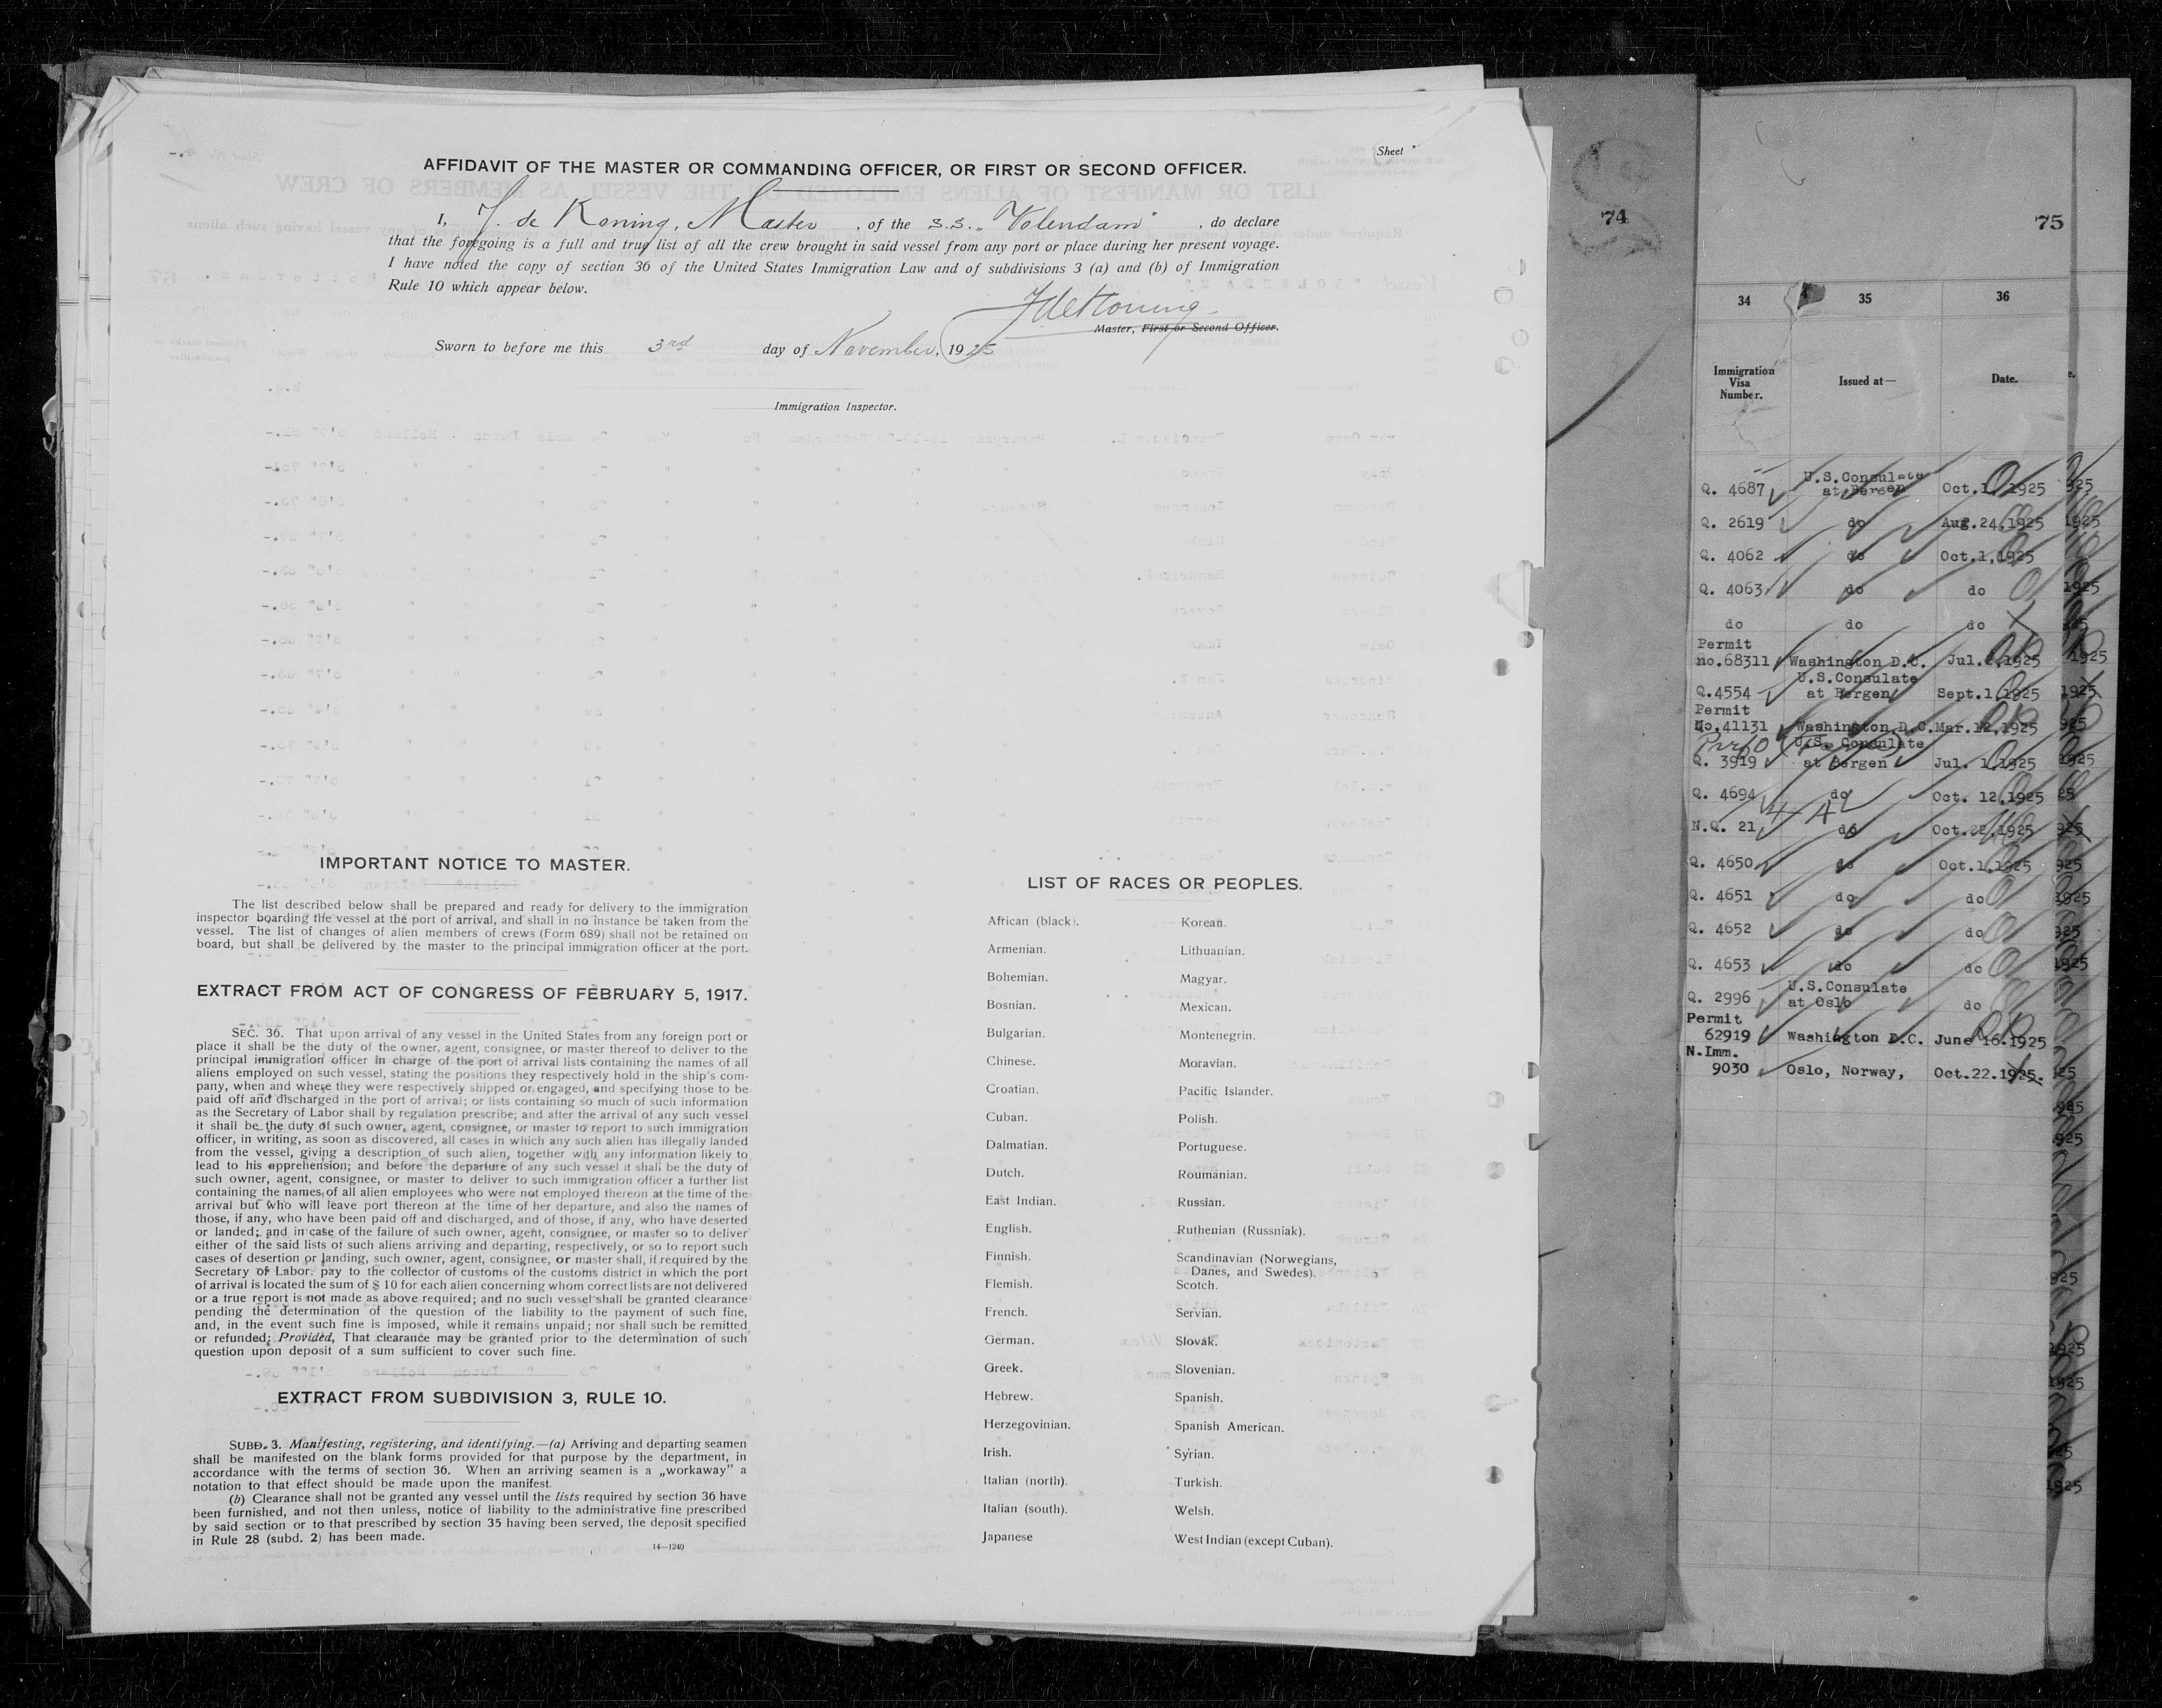 Sheet
AFFIDAVIT OF THE MASTER OR COMMANDING OFFICER, OR FIRST OR SECOND OFFICER.
I, J. de Koning, Master, of the S.S. „Volendam", do declare
that the foregoing is a full and true list of all the crew brought in said vessel from any port or place during her present voyage.
I have noted the copy of section 36 of the United States Immigration Law and of subdivisions 3 (a) and (b) of Immigration
Rule 10 which appear below.
JdeKoning.
Master, First or Second Officer.
Sworn to before me this 3rd day of November, 1925
Immigration Inspector.
IMPORTANT NOTICE TO MASTER.
The list described below shall be prepared and ready for delivery to the immigration
inspector boarding the vessel at the port of arrival, and shall in no instance be taken from the
vessel. The list of changes of alien members of crews (Form 689) shall not be retained on
board, but shall be delivered by the master to the principal immigration officer at the port.
EXTRACT FROM ACT OF CONGRESS OF FEBRUARY 5, 1917.
SEC. 36. That upon arrival of any vessel in the United States from any foreign port or
place it shall be the duty of the owner, agent, consignee, or master thereof to deliver to the
principal immigration officer in charge of the port of arrival lists containing the names of all
aliens employed on such vessel, stating the positions they respectively hold in the ship's com-
pany, when and where they were respectively shipped or engaged, and specifying those to be
paid off and discharged in the port of arrival; or lists containing so much of such information
as the Secretary of Labor shall by regulation prescribe; and after the arrival of any such vessel
it shall be the duty of such owner, agent, consignee, or master to report to such immigration
officer, in writing, as soon as discovered, all cases in which any such alien has illegally landed
from the vessel, giving a description of such alien, together with any information likely to
lead to his apprehension; and before the departure of any such vessel it shall be the duty of
such owner, agent, consignee, or master to deliver to such immigration officer a further list
containing the names of all alien employees who were not employed thereon at the time of the
arrival but who will leave port thereon at the time of her departure, and also the names of
those, if any, who have been paid off and discharged, and of those, if any, who have deserted
or landed; and in case of the failure of such owner, agent, consignee, or master so to deliver
either of the said lists of such aliens arriving and departing, respectively, or so to report such
cases of desertion or landing, such owner, agent, consignee, or master shall, if required by the
Secretary of Labor, pay to the collector of customs of the customs district in which the port
of arrival is located the sum of $ 10 for each alien concerning whom correct lists are not delivered
or a true report is not made as above required; and no such vessel shall be granted clearance
pending the determination of the question of the liability to the payment of such fine,
and, in the event such fine is imposed, while it remains unpaid; nor shall such be remitted
or refunded; Provided, That clearance may be granted prior to the determination of such
question upon deposit of a sum sufficient to cover such fine.
EXTRACT FROM SUBDIVISION 3, RULE 10.
SUBD. 3. Manifesting, registering, and identifying.—(a) Arriving and departing seamen
shall be manifested on the blank forms provided for that purpose by the department, in
accordance with the terms of section 36. When an arriving seamen is a „workaway" a
notation to that effect should be made upon the manifest.
(b) Clearance shall not be granted any vessel until the lists required by section 36 have
been furnished, and not then unless, notice of liability to the administrative fine prescribed
by said section or to that prescribed by section 35 having been served, the deposit specified
in Rule 28 (subd. 2) has been made.
14—1240
LIST OF RACES OR PEOPLES.
African (black). Korean.
Armenian. Lithuanian.
Bohemian. Magyar.
Bosnian. Mexican.
Bulgarian. Montenegrin.
Chinese. Moravian.
Croatian. Pacific Islander.
Cuban. Polish.
Dalmatian. Portuguese.
Dutch. Roumanian.
East Indian. Russian.
English. Ruthenian (Russniak).
Finnish. Scandinavian (Norwegians,
Danes, and Swedes).
Flemish. Scotch.
French. Servian.
German. Slovak.
Greek. Slovenian.
Hebrew. Spanish.
Herzegovinian. Spanish American.
Irish. Syrian.
Italian (north). Turkish.
Italian (south). Welsh.
Japanese West Indian (except Cuban).
74
75
34 35 36
Immigration Visa Number. Issued at— Date.
Q. 4687 U.S.Consulate at Bergen Oct.1, 1925
Q. 2619 do Aug.24,1925
Q. 4062 do Oct.1,1925
Q. 4063 do do
do do do
Permit
no.68311 Washington D.C. Jul. 1925
Q.4554 U.S.Consulate at Bergen Sept.1,1925
Permit
No.41131 Washington D.C. Mar.12,1925
Q. 3919 U.S. Consulate at Bergen Jul. 1,1925
Q. 4694 do Oct. 12,1925
N.Q. 21 do Oct.22,1925
Q. 4650 do Oct.1,1925
Q. 4651 do do
Q. 4652 do do
Q. 4653 do do
Q. 2996 U.S.Consulate at Oslo do
Permit
62919 Washington D.C. June 16.1925
N.Imm.
9030 Oslo, Norway, Oct.22.1925.